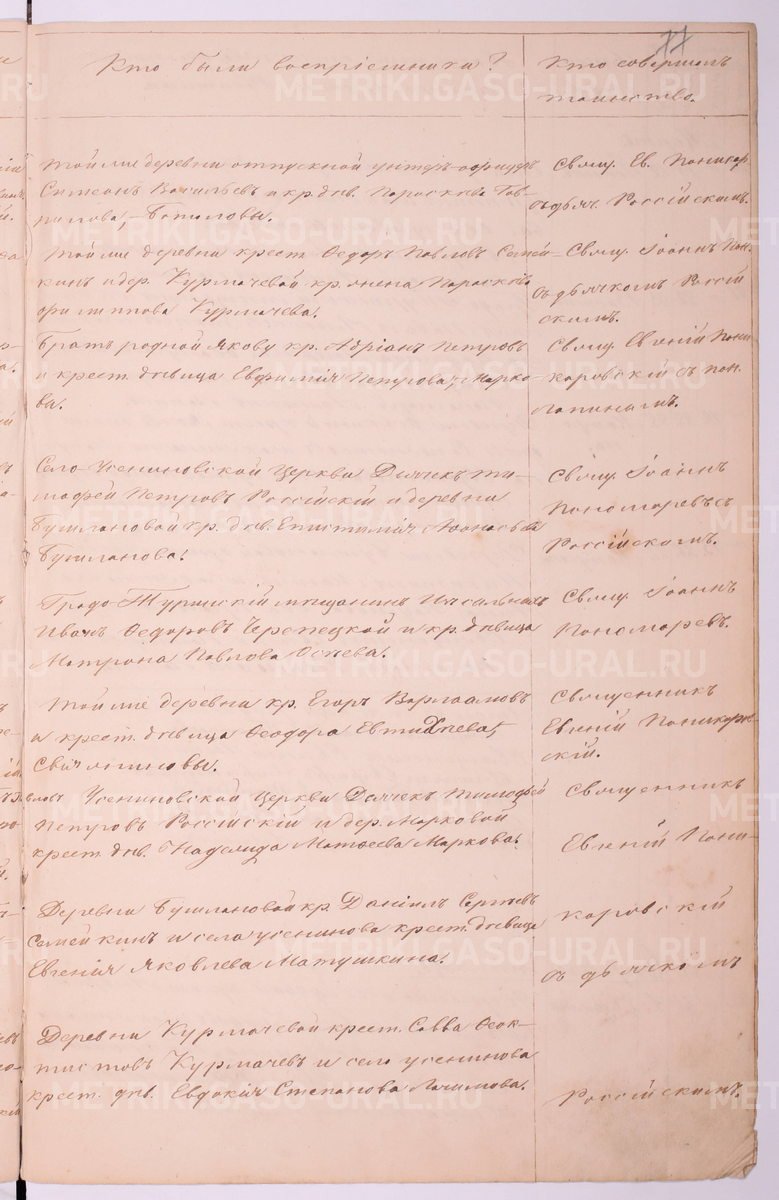 77
Кто были воспріемники?
Кто совершалъ
таинство.
Той же деревни отпускной унтеръ-офицеръ
Симеонъ Васильевъ и кр. дѣв. Параскева Гав-
рилова,
Свящ. Ев. Поникар.
съ дьяч. Россійскимъ.
Той же деревни крест. Ѳедоръ Павловъ Семей-
кинъ и дер. Курмачевой кр. жена Параскева
Филиппова Курмачева.
Свящ. Іоаннъ Пон.
съ дьячкомъ Россій
скимъ.
Братъ родной Якову кр. Адріанъ Петровъ
и крест. дѣвица Евфимія Петрова, Марко-
ва.
Свящ. Евгеній Пони
каровскій съ пон.
Лапинымъ.
Село-Усениновской Церкви Дьячекъ Ти-
мофей Петровъ Россійскій и деревни
Бушлановой кр. дѣв. Епистимія Аѳонасьева
Бушланова.
Свящ. Іоаннъ
Пономаревъ съ
Россійскимъ.
Градо-Туринскій мѣщанинъ
Иванъ Ѳедоровъ Черепецкой и кр. дѣвица
Матрона Павлова
Свящ. Іоаннъ
Пономаревъ.
Той же деревни кр. Егоръ Варлаамовъ
и крест. дѣвица Ѳеодора Евтихіева,
Священникъ
Евгеній Поникаров-
скій.
Усениновской Церкви Дьячекъ Тимофей
Петровъ Россійскій и дер. Марковой
крест. дѣв. Надежда Матвеева Маркова.
Священникъ
Евгеній Пони-
Деревни Бушлановой кр. Даніилъ Сергѣевъ
Семейкинъ и села Усенинова крест. дѣвица
Евгенія Яковлева Матушкина.
каровскій
съ дьячкомъ
Деревни Курмачевой крест. Савва Ѳеок-
тистовъ Курмачевъ и село Усенинова
крест. дѣв. Евдокія Степанова
Россійскимъ.
METRIKI.GASO-URAL.RU